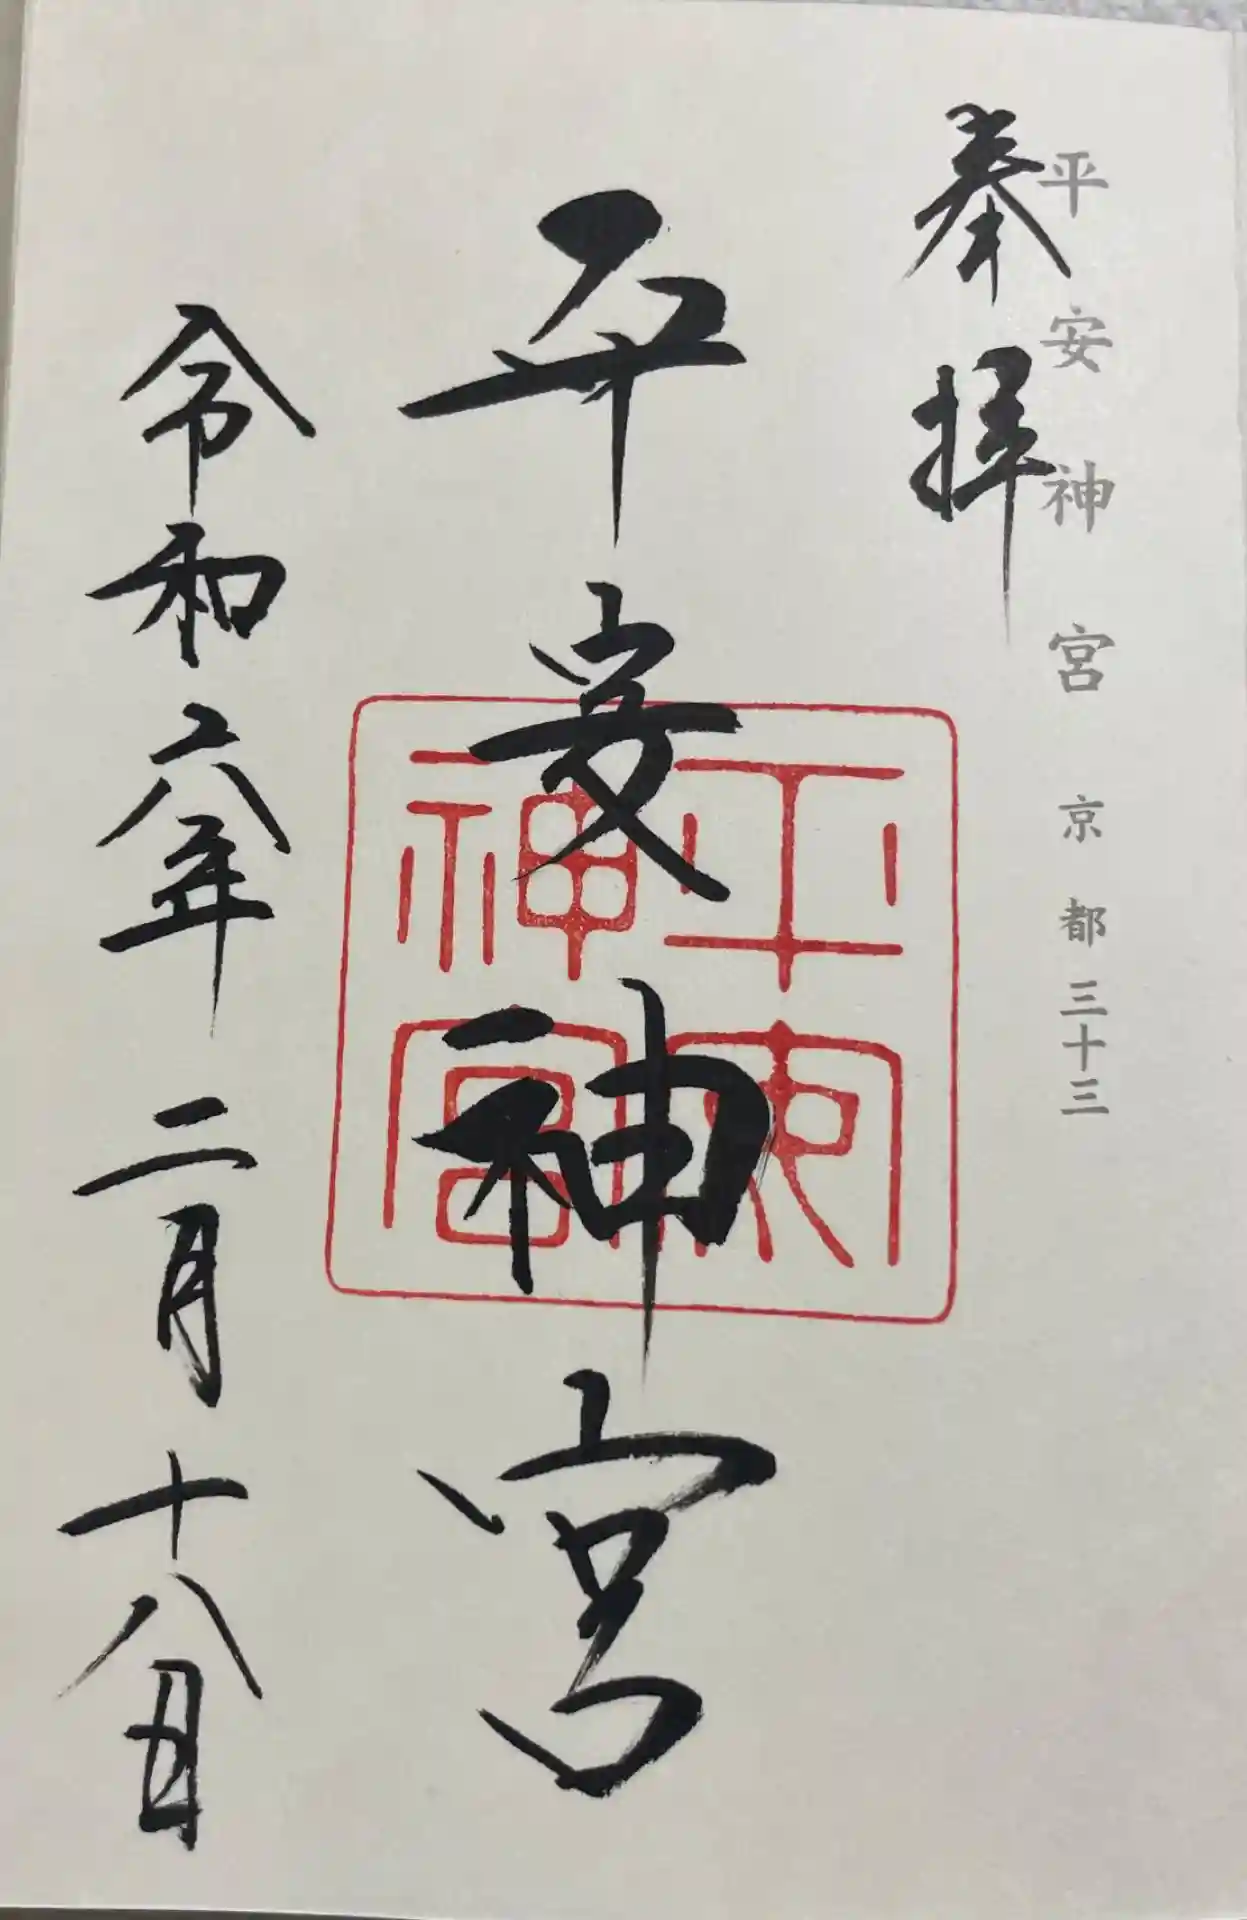 平安神宮 京都三十三
奉拝
平安神宮
平安神宮
令和六年 二月 十八日